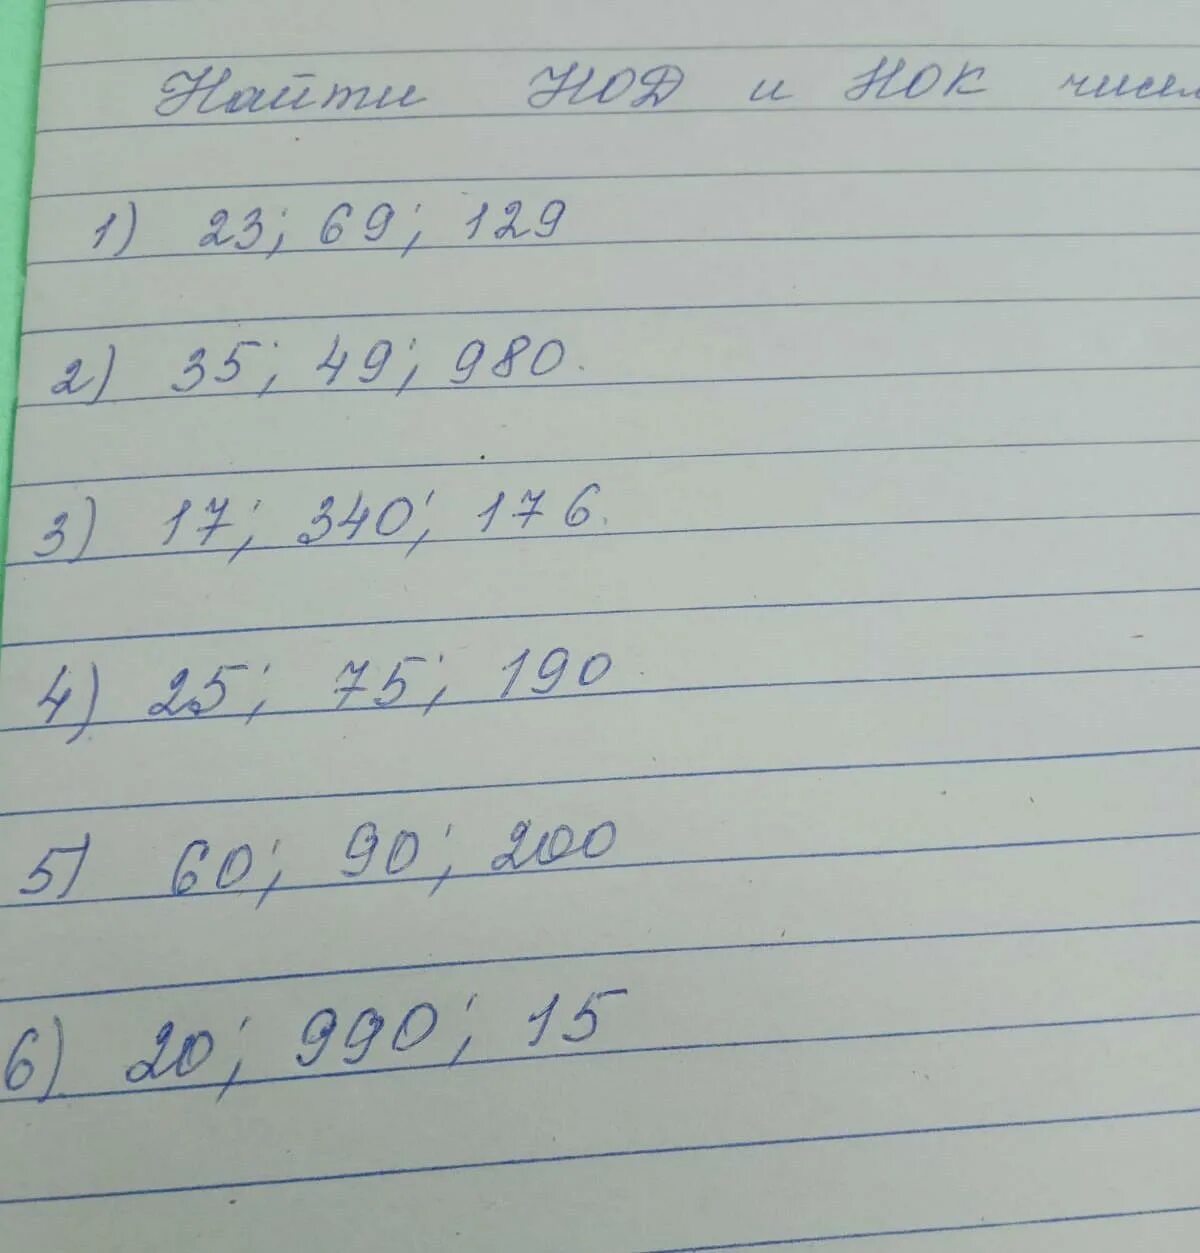 Найти НОД и НОК чисел
1) 23; 69; 129
2) 35; 49; 980.
3) 17; 340; 176.
4) 25; 75; 190
5) 60; 90; 200
6) 20; 990; 15